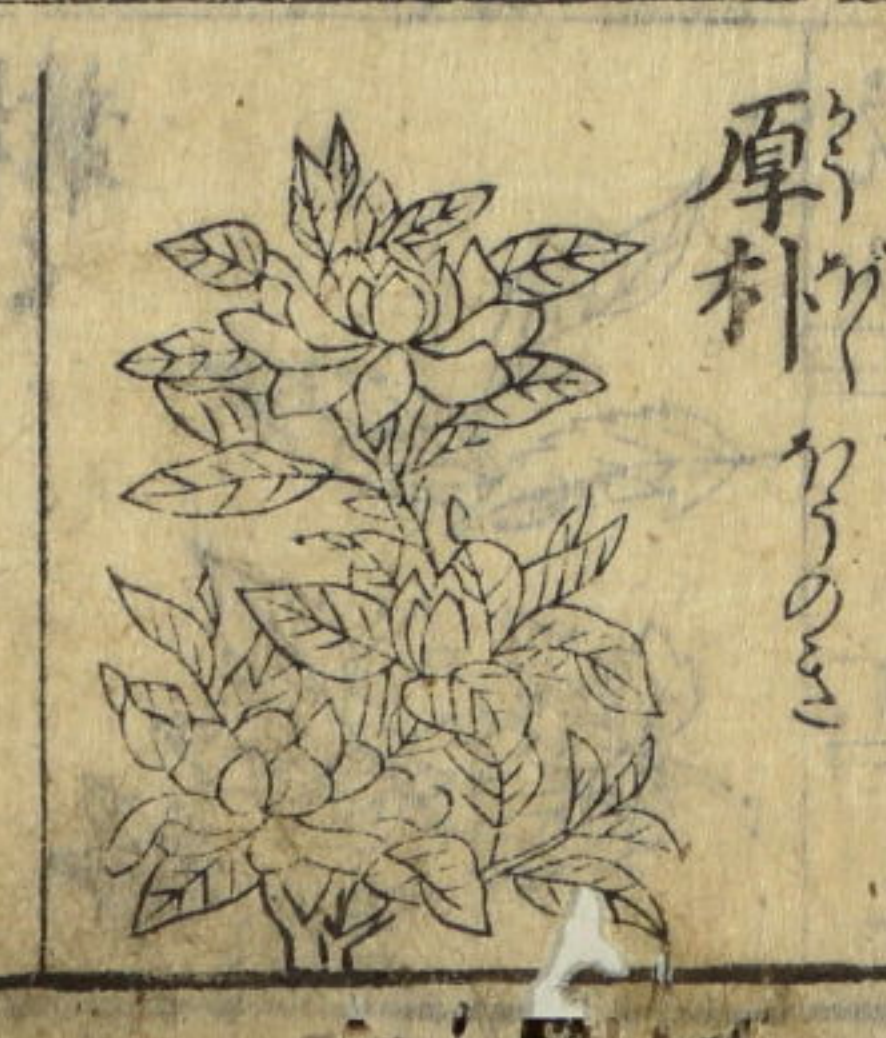 厚朴
こうぼく
ほうのき